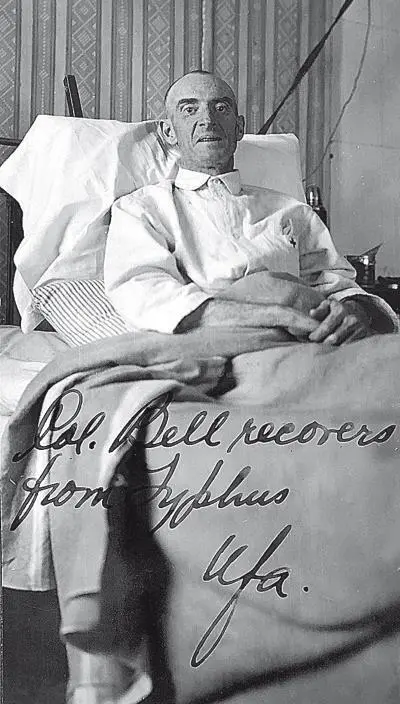 Col. Bell recovers
from Typhus
Ufa.